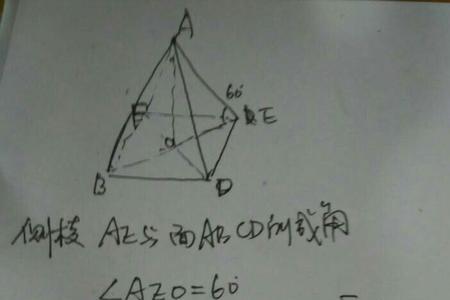 A
60°
E
E
O
B
D
侧棱 AE与面ABCD的成角
∠AEO=60°